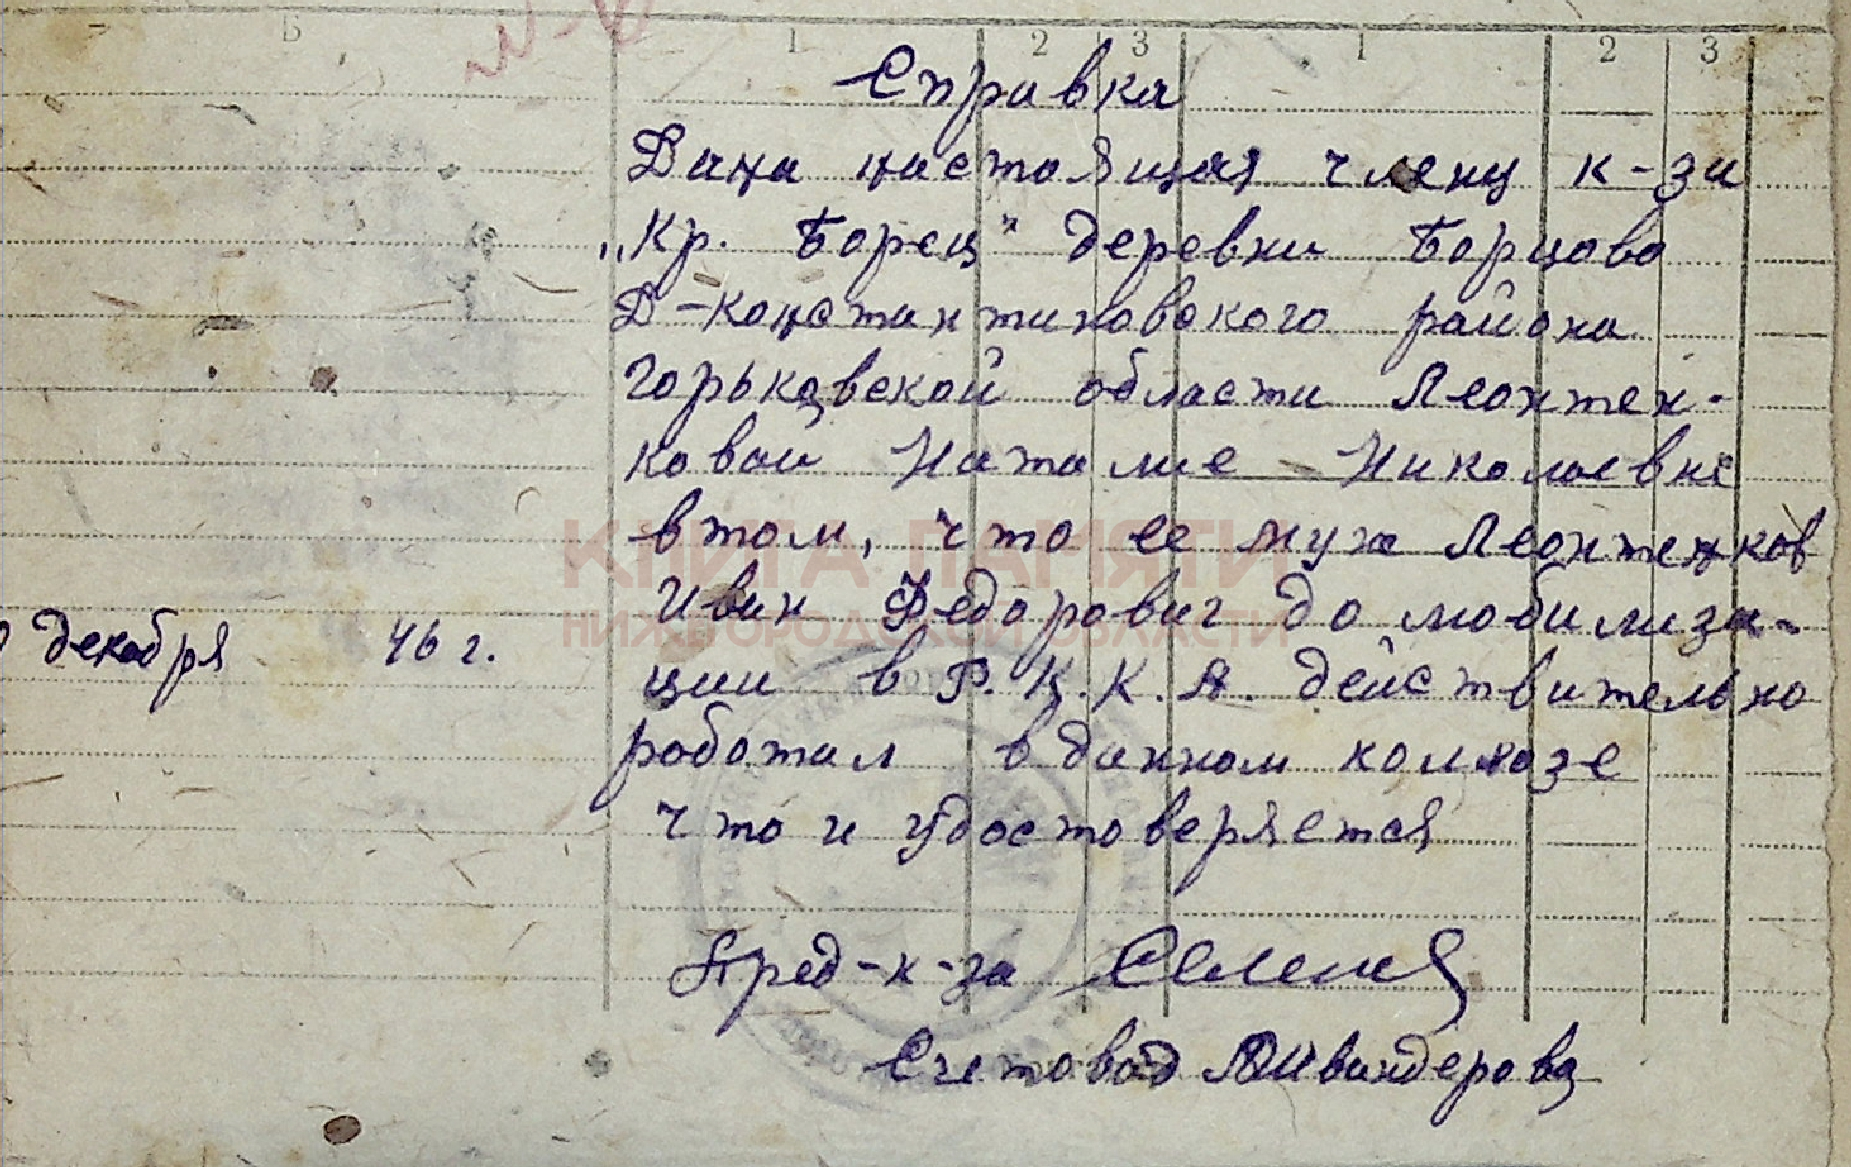 Б 1 2 3 1 2 3
Справка
Дана настоящая члену к-за
„Кр. Борец" деревни Борцово
Д-Константиновского района
Горьковской области Леонтен-
ковой Наталие Николаевне
в том, что ее муж Леонтенков
Иван Федорович до мобилиза-
ции в Р.К.К.А. действительно
роботал в данном колхозе
что и удостоверяется
декабря 46 г.
Пред-к-за
Счетовод
КНИГА ПАМЯТИ
НИЖЕГОРОДСКОЙ ОБЛАСТИ